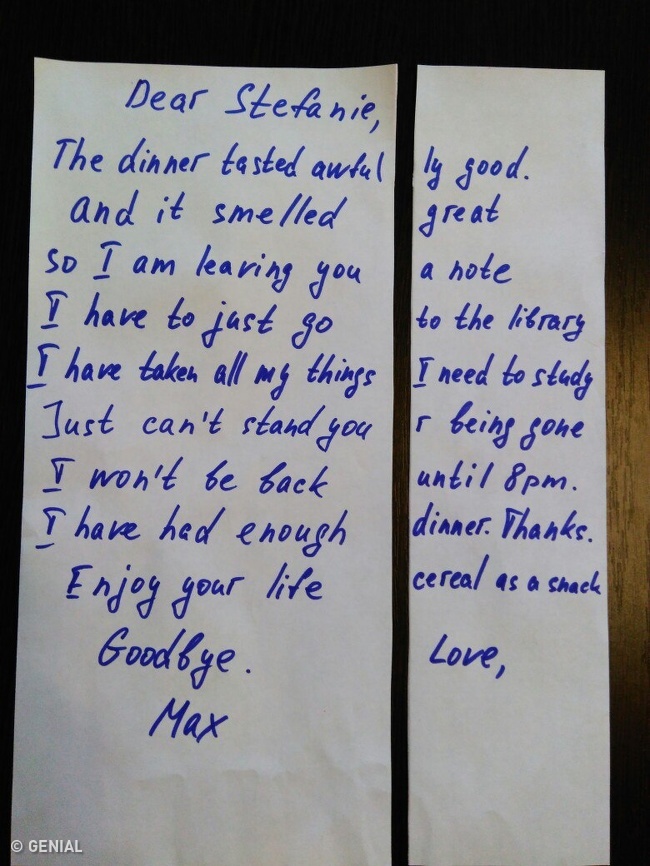 Dear Stefanie,
The dinner tasted awful ly good.
and it smelled great
so I am leaving you a note
I have to just go to the library
I have taken all my things I need to study
Just can't stand you r being gone
I won't be back until 8pm.
I have had enough dinner. Thanks.
Enjoy your life cereal as a snack
Goodbye. Love,
Max
© GENIAL